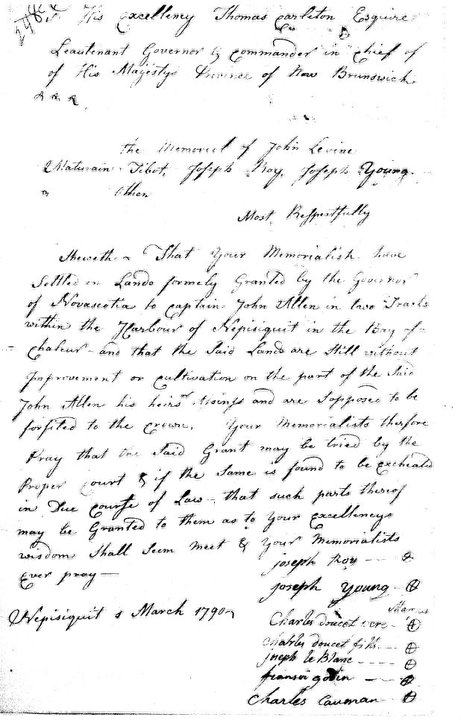 His Excellency Thomas Carleton Esquire
Leautenant Governor & Commander in Chief of
of His Magestys Province of New Brunswick
&c &c &c
The Memoriel of John Levine
Maturain Tibot, Joseph Roy, Joseph Young
Most Respectfully
Sheweth That Your Memorialists have
Settled on Lands formely Granted by the Governor
of Novascotia to Captain John Allen in two Tracks
within the Harbour of Nepisiquit in the Bay of
Chaleur and that the Said Lands are Still without
Improvement or Cultivation on the part of the Said
John Allen his heirs or Asings and are Soposed to be
forfited to the Crown. Your Memorialists therfore
Pray that the Said Grant may be tried by the
Proper Court & if the Same is found to be Excheald
in Due Course of Law that such parts therof
may be Granted to them as to Your Excellencys
wisdom Shall Seem meet & Your Memorialists
Ever pray
joseph Roy
joseph Young
Nepisiquit March 1790
Charles doucet
Charles doucet fils
joseph le Blanc
fransoi godin
Charles Cauman